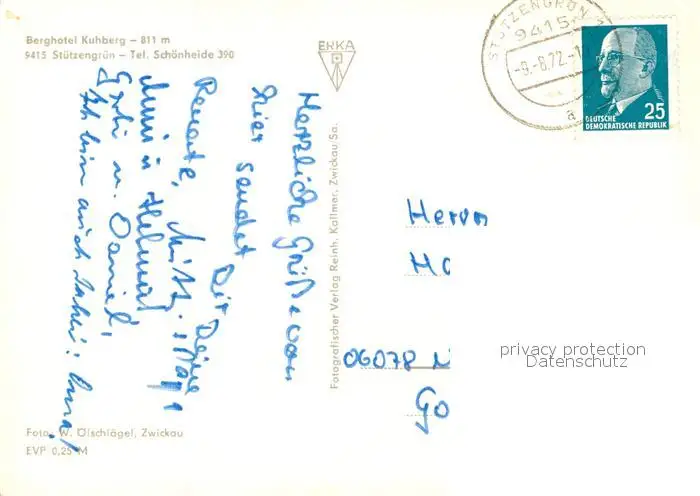 Berghotel Kuhberg – 811 m
9415 Stützengrün – Tel. Schönheide 390
ERKA
STÜTZENGRÜN 1
9415
-9.-6.72.-1
a
25
DEUTSCHE
DEMOKRATISCHE REPUBLIK
Herzliche Grüße von
hier sendet Dir Deine
Renate, Mutti,
u. Helmut
u. Daniel,
Ich bin auch dabei: Oma!
Fotografischer Verlag Reinh. Kallmer, Zwickau Sa.
Herrn
HO
06078
Go
privacy protection
Datenschutz
Foto: W. Ölschlägel, Zwickau
EVP 0,25 M